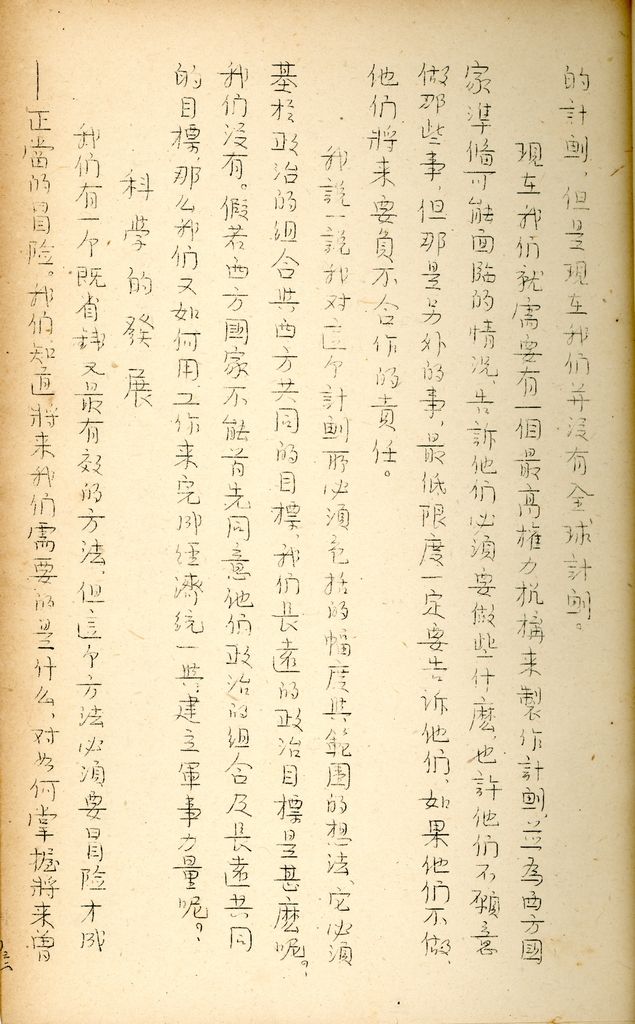 的計劃，但是現在我们并沒有全球計劃。
現在我们就需要有一個最高權力机構来製作計劃，並為西方國
家準備可能面臨的情況，告訴他们必須要做些什麽，也許他们不願意
做那些事，但那是另外的事，最低限度一定要告訴他们，如果他们不做，
他们將来要負不合作的責任。
我說一說我对這个計劃所必須包括的幅度與範圍的想法，它必須
基於政治的組合與西方共同的目標，我们長遠的政治目標是甚麽呢？
我们沒有。假若西方國家不能首先同意他们政治的組合及長遠共同
的目標，那么我们又如何用工作来完成經濟統一與建立軍事力量呢？
科學的發展
我们有一个既省錢又最有效的方法，但這个方法必須要冒险才成
——正當的冒险。我们知道將来我们需要的是什么，对於如何掌握將来當